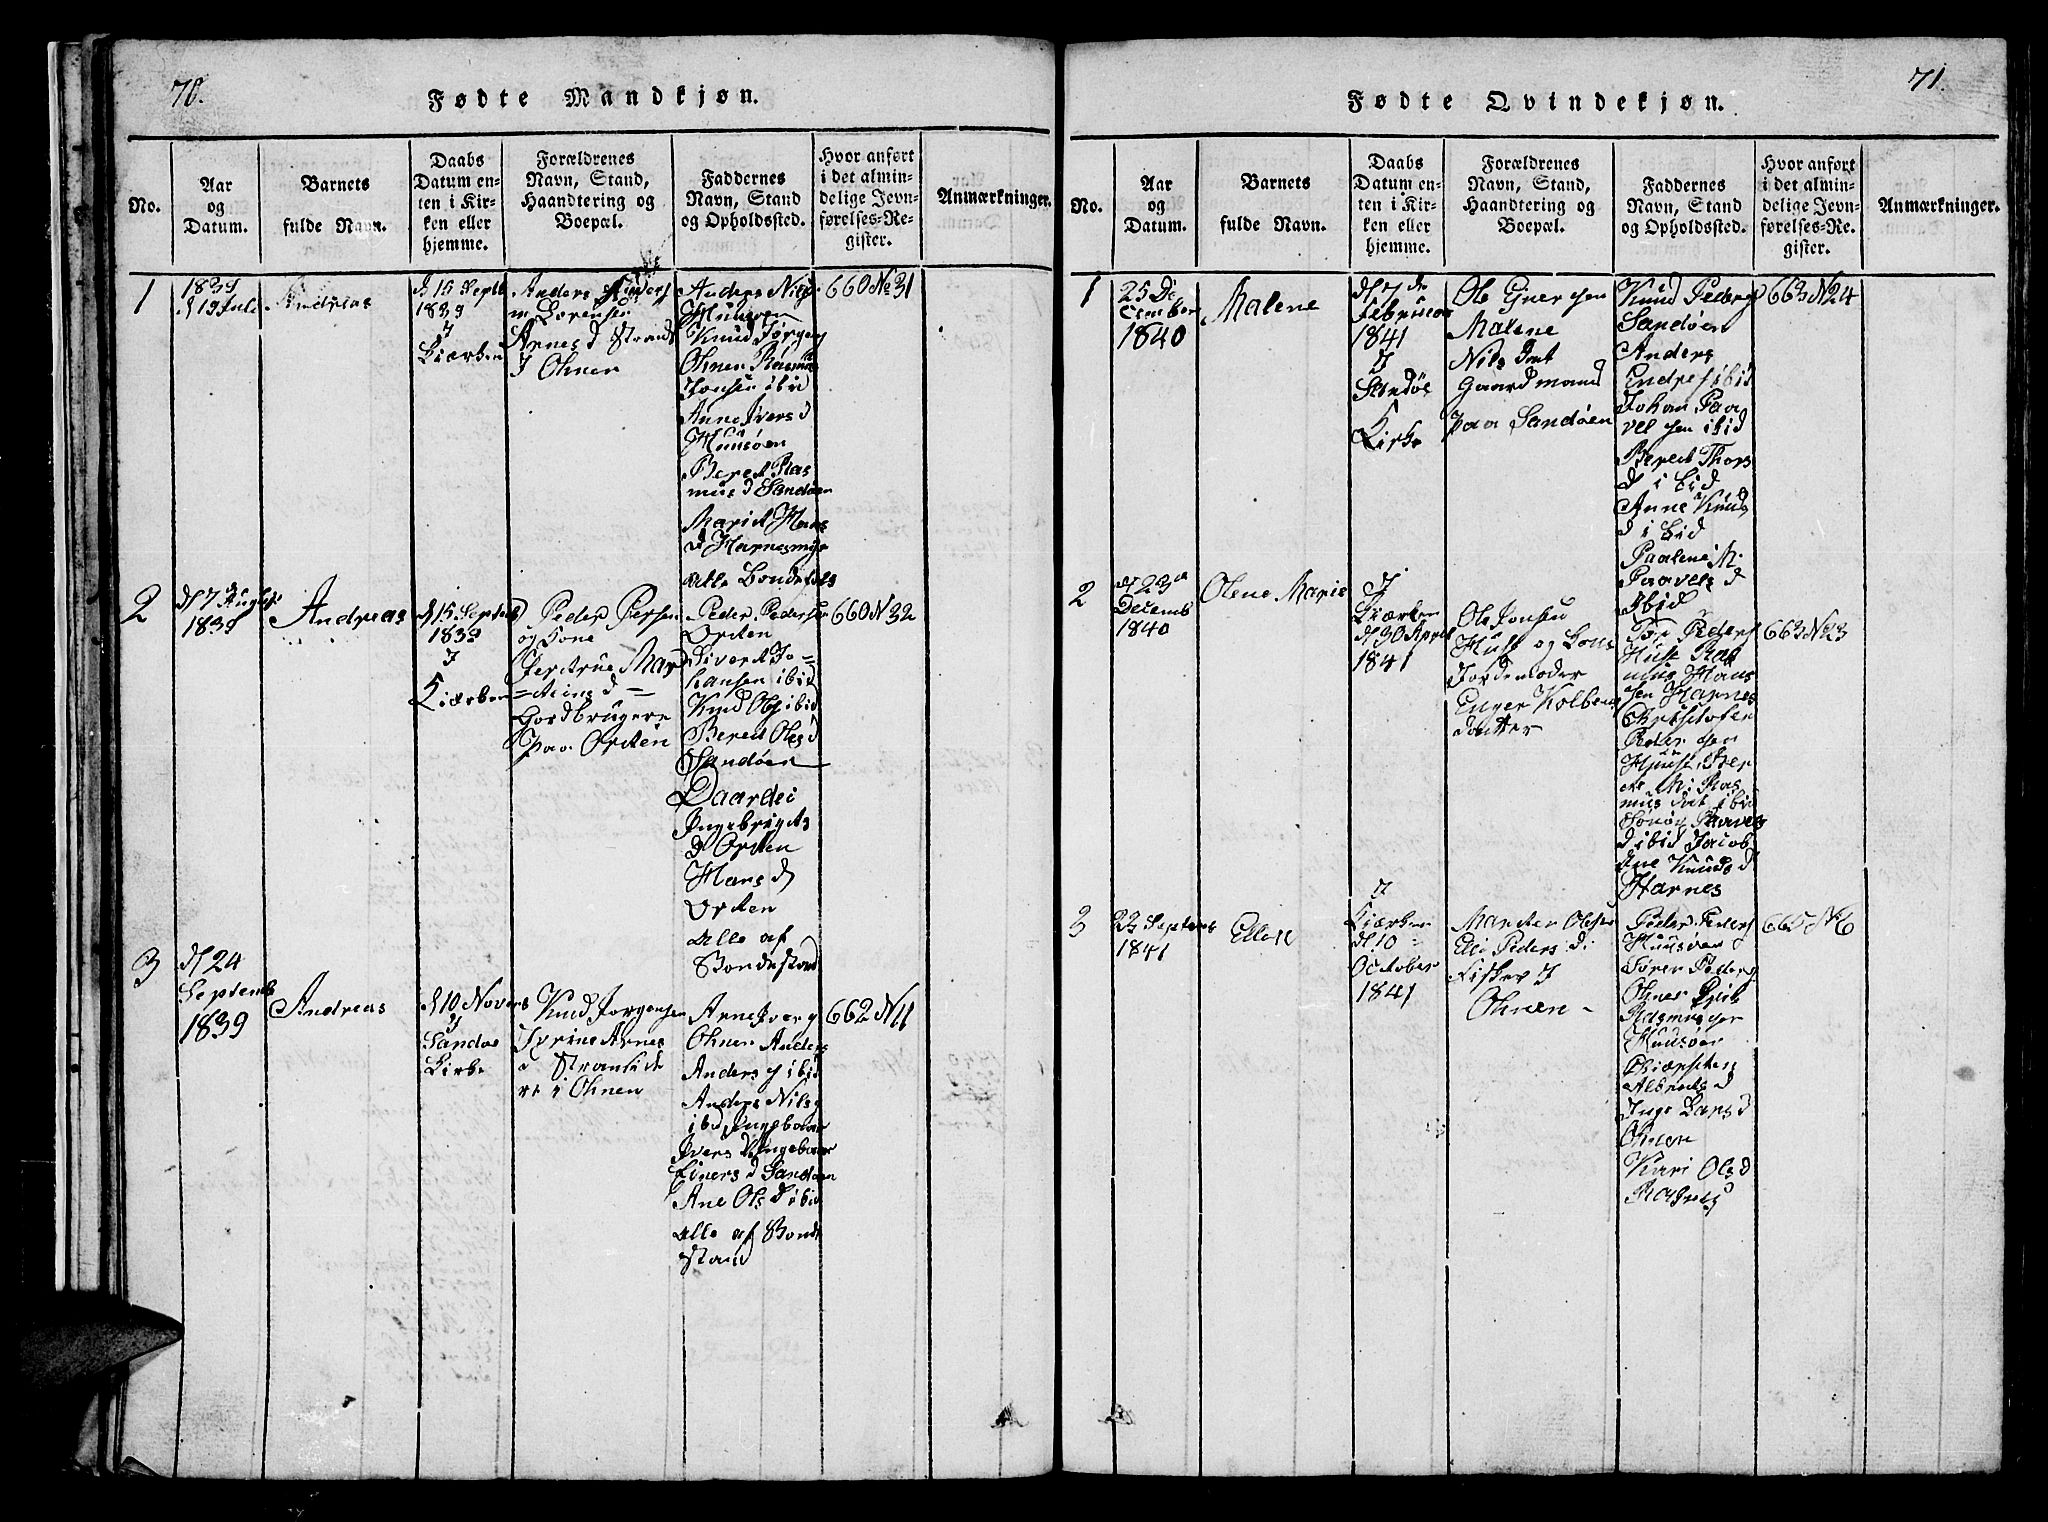 70.
Fødte Mandkjøn.
No.
Aar
og
Datum.
Barnets
fulde Navn.
Daabs
Datum en-
ten i Kir-
ken eller
hjemme.
Forældrenes
Navn, Stand,
Haandtering og
Boepæl.
Faddernes
Navn, Stand
og Opholdssted.
Hvor anført
i det almin-
delige Jevn-
førelses-Re-
gister.
Anmærkninger.
1
1839
d 19 Juli
Andreas
d 15 Septb
1839
I
Kiærken
Anders
Lorense
Arnes d Strand
I Ohnen
Anders Nils
Huusøen
Knud Jørgens
Ohnen Rasmus
Jonsen ibid
Anne Ivers d
Huusøen
Beret Ras
mus d Sandøen
Marit Hans
d Harnesmyr
alle Bondefols
660 No 31
2
d 7 August
1839
Andreas
d 15 Septemb
1839
I
Kiærken
Peder Persen
og Kone
Gertrue Mar
=tins d=
Gordbrugere
paa Orten
Peder Pedersen
Orten
Sivert Jo=
hansen ibid
Knud Ols ibid
Beret Ols d
Sandøen
Daardei
Ingebrigts
d Orten
Hans d
Orten
alle af
Bondestand
660 N 32
3
d 24
Septemb
1839
Andreas
d 10 Novers
I
Sandøe
Kirke
Knud Jorgensen
Arnes
d Strandside
re i Ohnen
Arne Ivers
Ohnen Anders
Anders ibid
Anders Nils
ibd Ingeboer
Ivers d Ingeboer
Einers d Sandøen
Ane Ols d ibid
alle af Bonde
stand
662 N 11
71.
Fødte Qvindekjøn.
No.
Aar
og
Datum.
Barnets
fulde Navn.
Daabs
Datum en-
ten i Kir-
ken eller
hjemme.
Forældrenes
Navn, Stand,
Haandtering og
Boepæl.
Faddernes
Navn, Stand
og Opholdssted.
Hvor anført
i det almin-
delige Jevn-
førelses-Re-
gister.
Anmærkninger.
1
25 De
cember
1840
Malene
d 7 de
Februar
1841
I
Sandøe
Kirke
Ole Einersen
Malene
Nils Dat
Gaardmand
paa Sandøen
Knud Peders
Sandøen
Anders
Endres ibid
Johan Paa
velsen ibid
Beret Thors
d ibid
Anne Knuds
d ibid
Paaline M.
Paavels d
Ibid
663 N 24
2
d 23
Decemb
1840
Olene Marie
I
Kiærken
d 30 April
1841
Ole Jonsen
Huse og Kone
Jordemoder
Enger Kolbens
datter
Peders
Huse Ras
mus Hans
sen Harnes
Christofer
Pedersen
Huuse Ber
et M. Ras
mus dat ibid
Paavels
d ibid Jacob
ine Knuds d
Harnes
663 N 23
3
23 September
1841
Ellen
I
Kiærken
d 10
October
1841
Olsen
Eli Peders d
Fisker I
Ohnen -
Peder Peders
Huusøen
Sören Peders
Ohnen Erik
Rasmussen
Huusøen
Alberts d
Inge Lars d
Ohnen
Kari Ols d
665 N 6